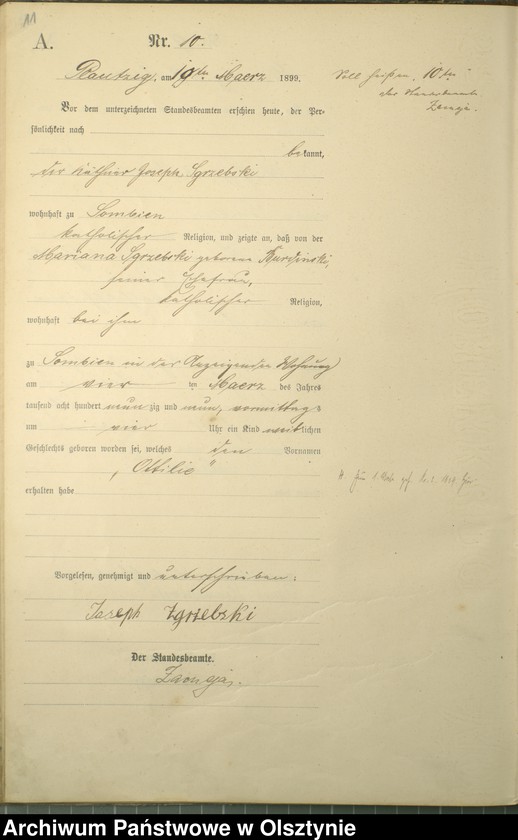 11
A.
Nr. 10.
Rautzig, am 19ten Maerz 1899.
Vor dem unterzeichneten Standesbeamten erschien heute, der Per-
sönlichkeit nach
bekannt,
der Käthner Joseph Sgrzebski
wohnhaft zu Sombien
katholischer Religion, und zeigte an, daß von der
Mariana Sgrzebski geborene
seiner Ehefrau,
katholischer Religion,
wohnhaft bei ihm
zu Sombien in der Anzeigenden Wohnung
am vier ten Maerz des Jahres
tausend acht hundert neun zig und neun, vormittags
um vier Uhr ein Kind weiblichen
Geschlechts geboren worden sei, welches den Vornamen
„Ottilie"
erhalten habe
Vorgelesen, genehmigt und unterschrieben:
Joseph Zgrzebski
Der Standesbeamte.
Soll heißen 10ten
der Standesbeamte
Archiwum Państwowe w Olsztynie